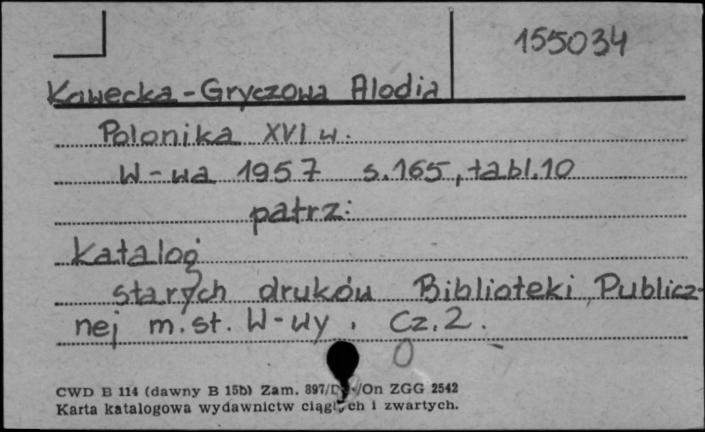 155034
Kawecka-Gryczowa Alodia
Polonika XVI w.
W-wa 1957 s.165, tabl.10
patrz:
Katalog
starych druków Biblioteki Publicz-
nej m.st. W-wy. Cz.2.
CWD B 114 (dawny B 15b) Zam. /On ZGG 2542
Karta katalogowa wydawnictw ciągłych i zwartych.